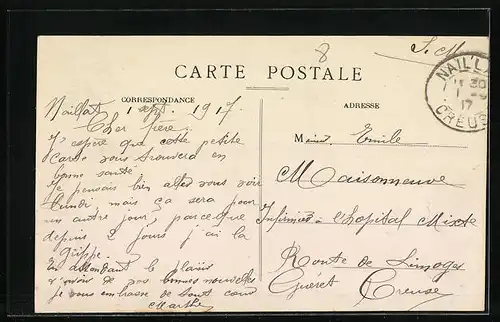 8
F. M.
NAILLA
11 30
1 - 9
17
CREUSE
CARTE POSTALE
CORRESPONDANCE
ADRESSE
Naillat 1 sept. 1917
Cher père
J'espère que cette petite
carte vous trouvera en
bonne santé
Je pensais bien aller vous voir
lundi, mais ça sera pour
un autre jour, parceque
depuis 2 jours j'ai la
grippe
En attendant le plaisir
d'avoir de vos bonnes nouvelles
je vous embrasse de tout cœur
Marthe
M Emile
Maisonneuve
Infirmier à l'hopital Mixte
Route de Limoges
Guéret Creuse